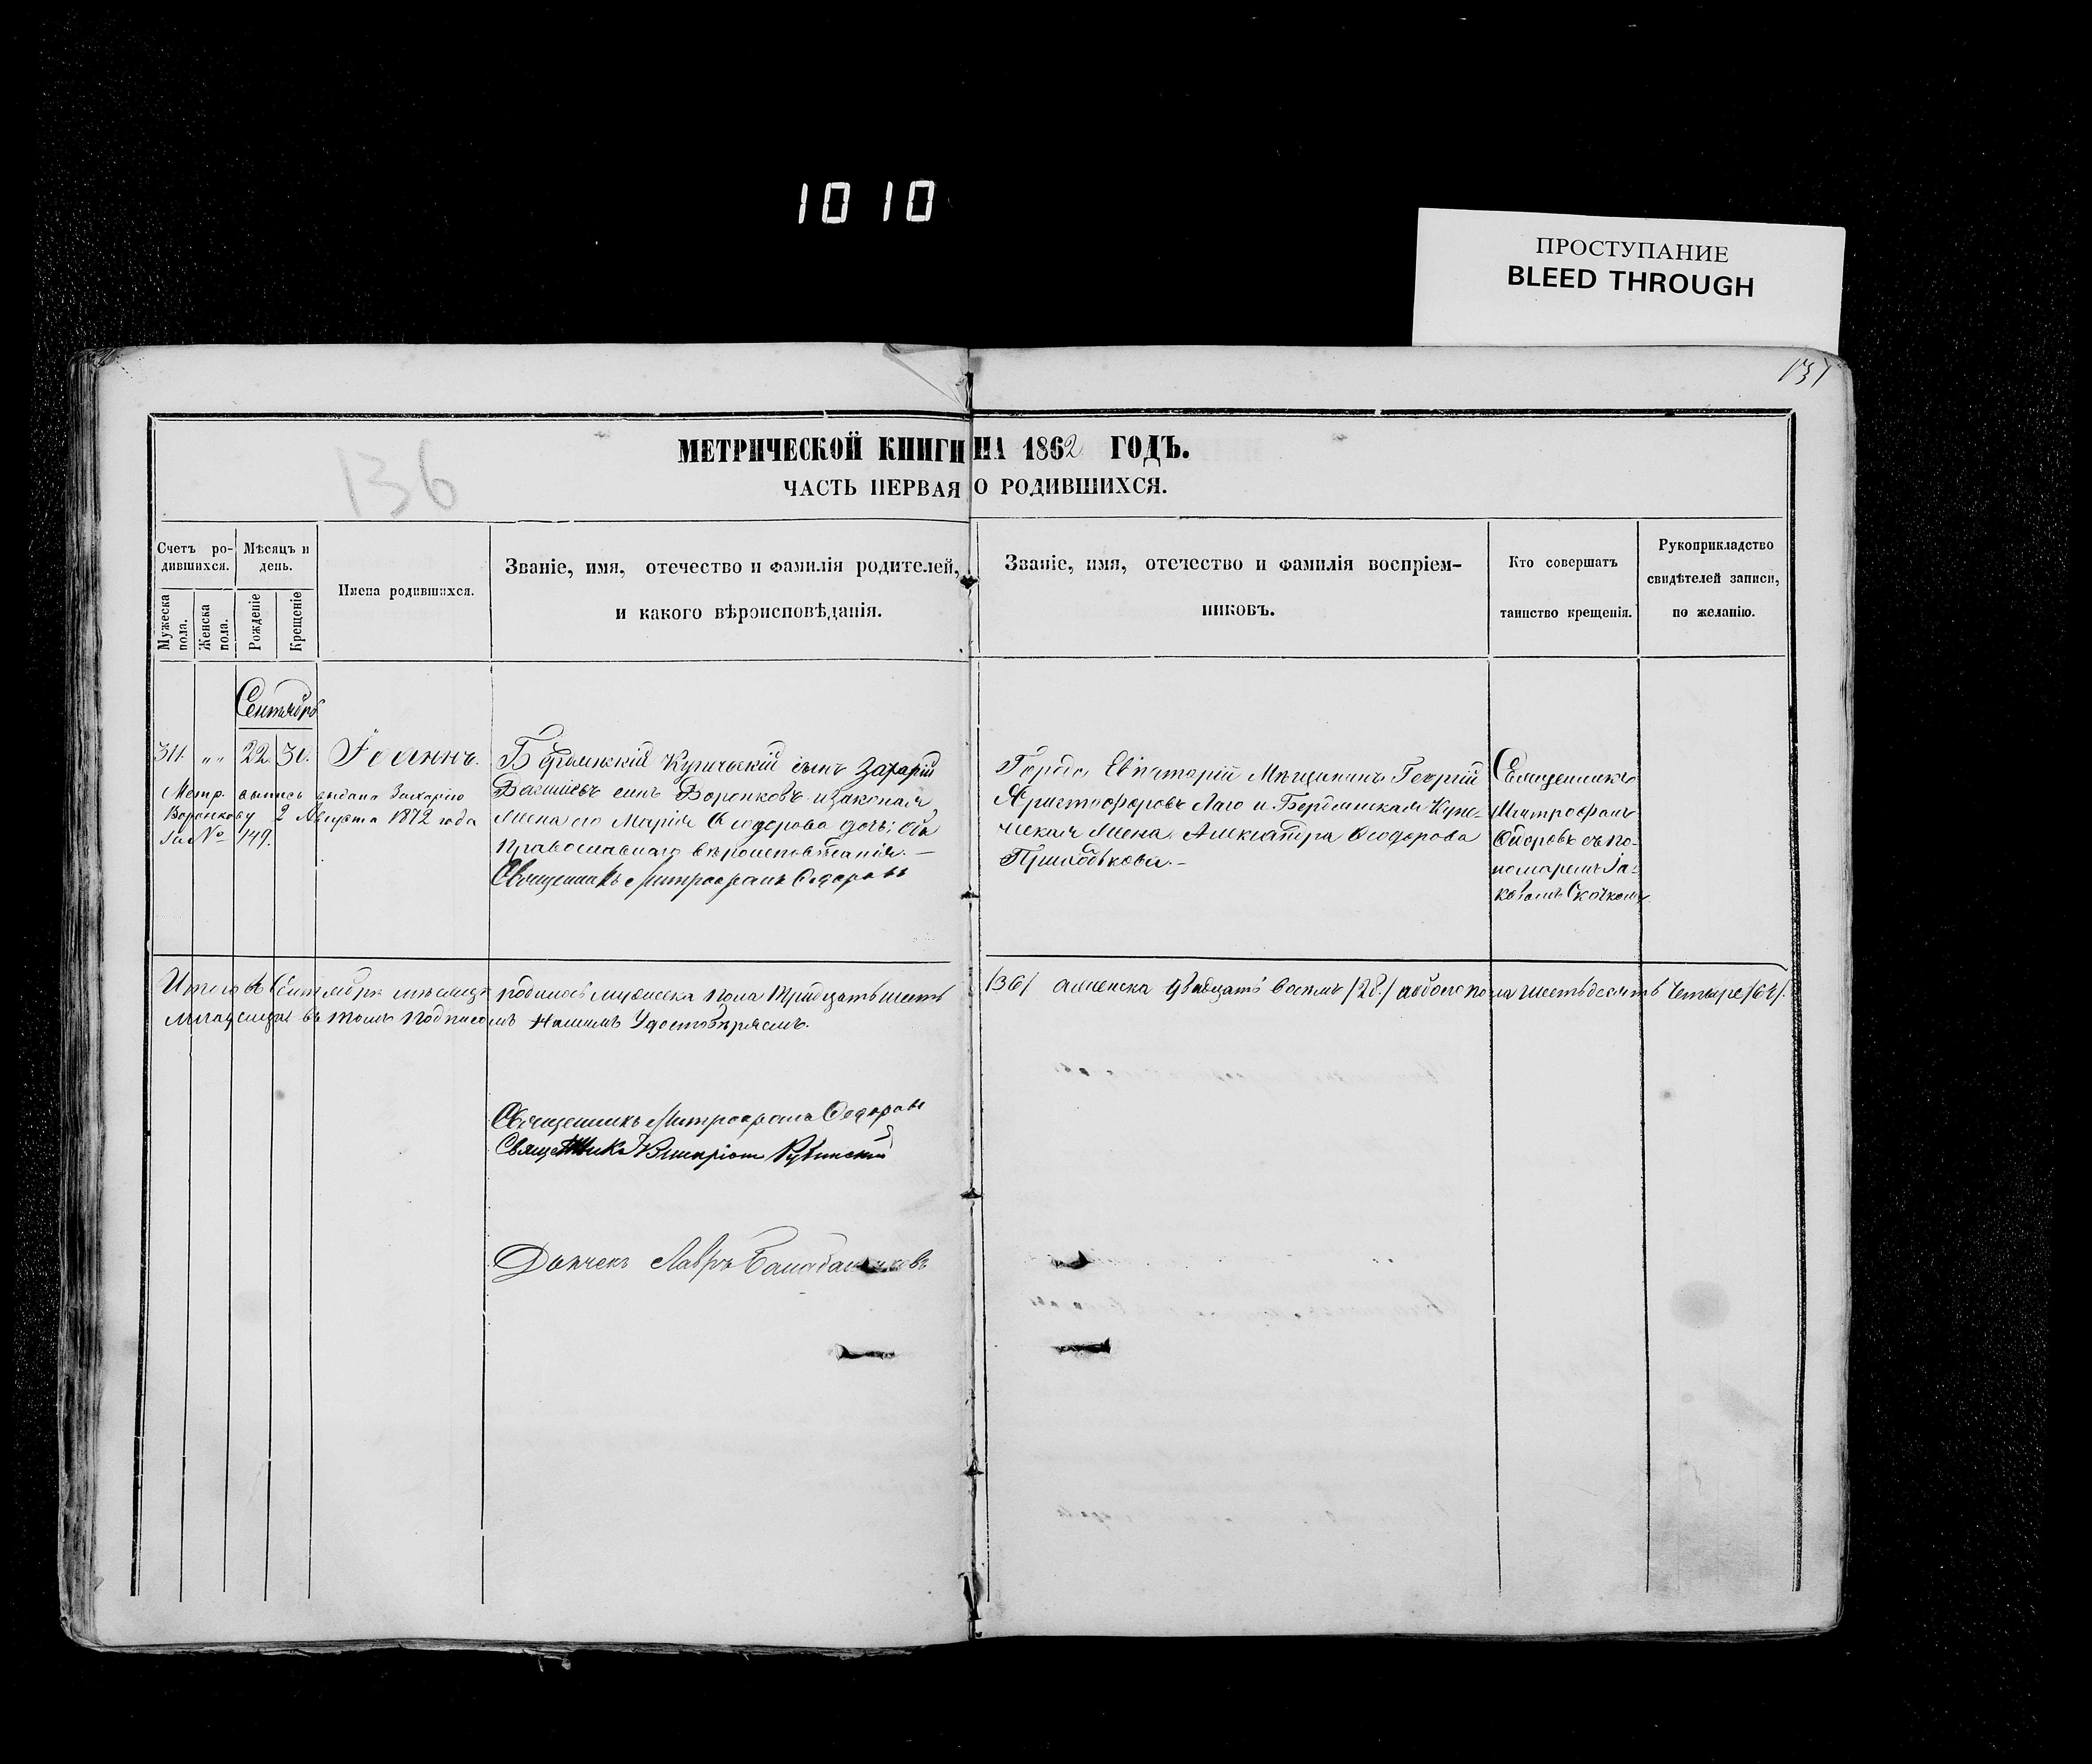 10 10
ПРОСТУПАНИЕ
BLEED THROUGH
137
136
МЕТРИЧЕСКОЙ КНИГИ НА 1862 ГОДЪ.
ЧАСТЬ ПЕРВАЯ О РОДИВШИХСЯ.
Счетъ ро-
дившихся.
Мѣсяцъ и
день.
Мужеска
пола.
Женска
пола.
Рожденіе
Крещеніе
Имена родившихся.
Званіе, имя, отечество и фамилія родителей,
и какого вѣроисповѣданія.
Званіе, имя, отечество и фамилія воспріем-
никовъ.
Кто совершатъ
таинство крещенія.
Рукоприкладство
свидѣтелей записи,
по желанію.
Сентябрь
311. „ „ 22. 30. Іоаннъ.
Метр. выпись выдана Захарію
Воронкову 2 Августа 1872 года
за № 149.
Бердянскій Купеческій сынъ Захарій
Васильевъ сынъ Воронковъ и законная
жена его Марія Ѳеодорова дочь; оба
православнаго вѣроисповѣданія. —
Священникъ Митрофанъ Ѳедоровъ
Города Евпаторіи Мѣщанинъ Георгій
Христофоровъ Лаго и Бердянская Купе-
ческая жена Александра Ѳеодорова
Священникъ
Митрофанъ
Ѳедоровъ съ по-
номаремъ Іа-
ковомъ
Итого въ Сентябрѣ мѣсяцѣ родилось мужеска пола тридцать шесть /36/ а женска двадцать восемь /28/ а обоего пола шестьдесятъ четыре /64/.
младенцевъ въ томъ подписомъ нашимъ удостовѣряемъ.
Священникъ Митрофанъ Ѳедоровъ
Священникъ
Дьячекъ Лавръ